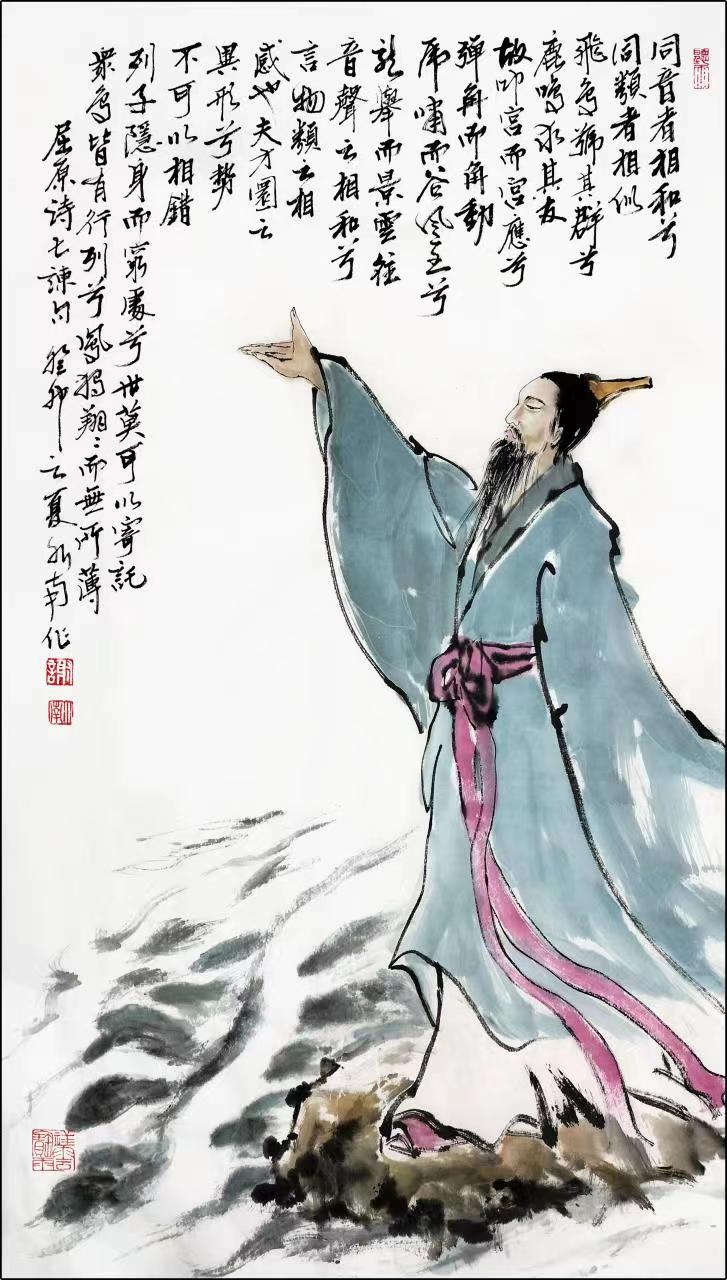 同音者相和兮
同類者相似
飛鳥號其群兮
鹿鳴求其友
故叩宮而宮應兮
彈角而角動
虎嘯而谷風至兮
龍舉而景雲往
音聲之相和兮
言物類之相
感也夫方圜之
異形兮勢
不可以相錯
列子隱身而窮處兮世莫可以寄託
眾鳥皆有行列兮鳳獨翔〻而無所薄
屈原詩七諫句癸卯之夏川南作
謝
川南
聽雨